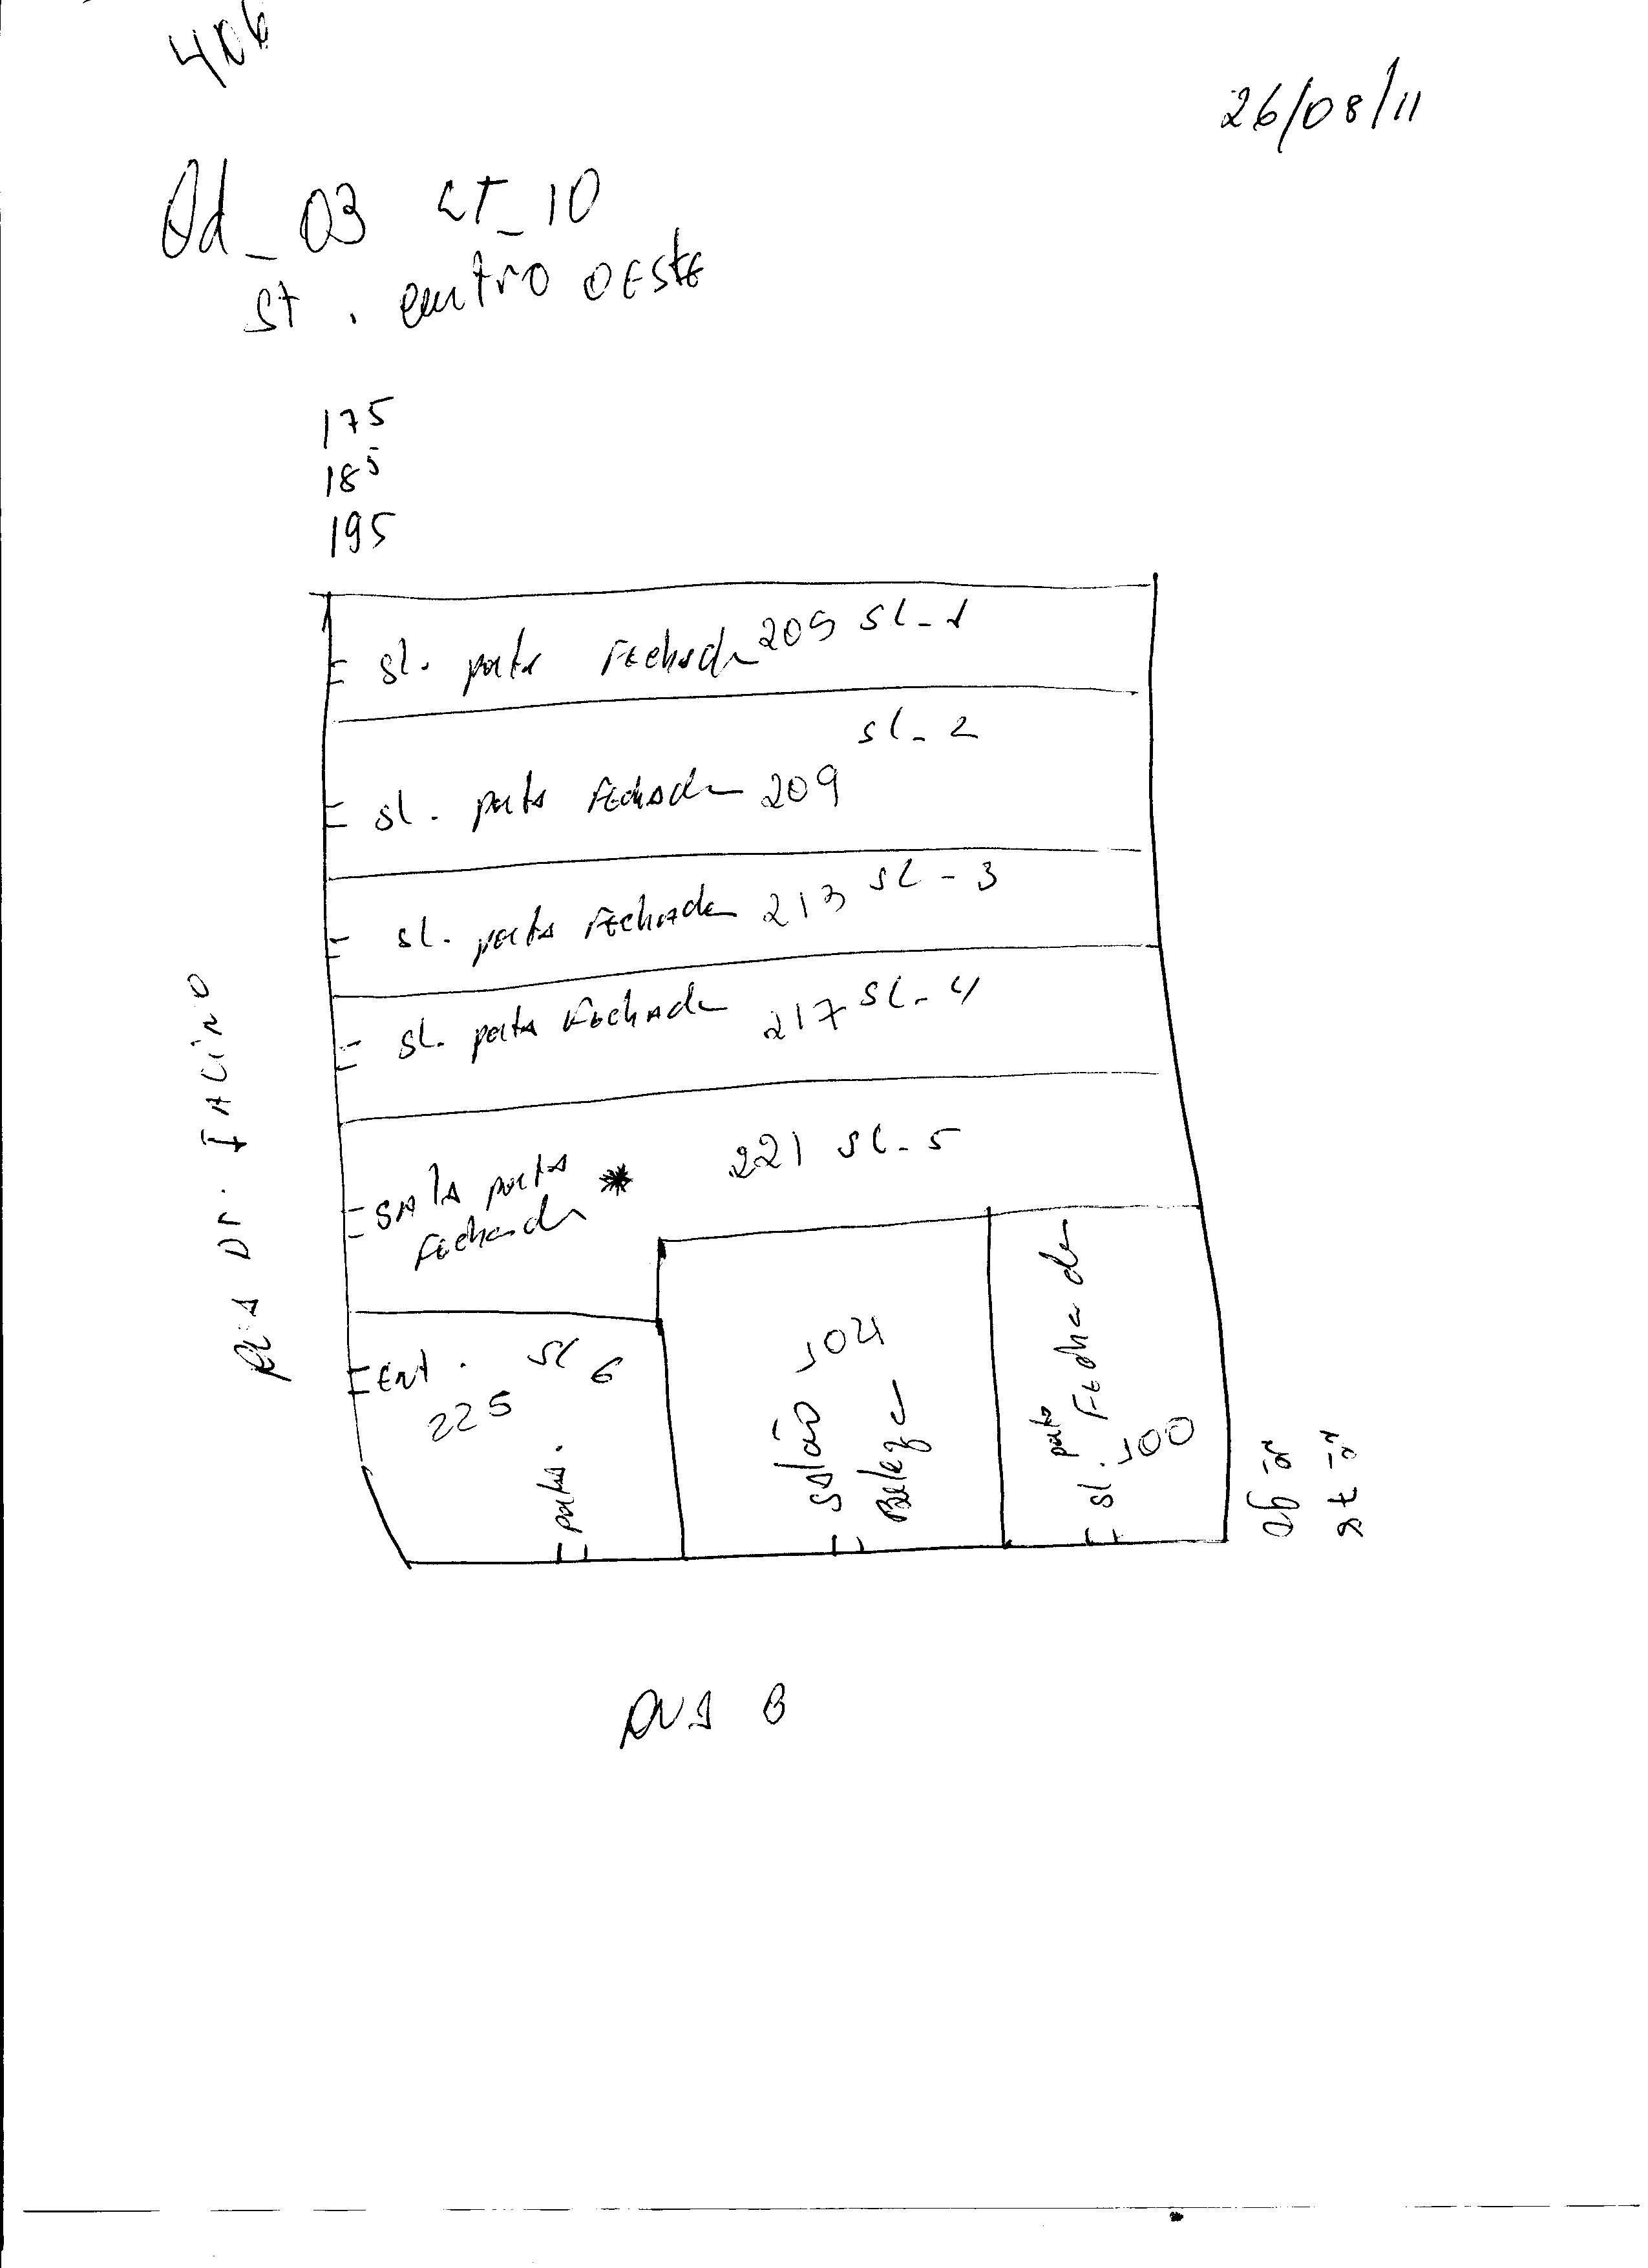 406
26/08/11
Qd_03 LT_10
St. centro OESte
175
185
195
sl. porta Fechada 205 SL-1
sl-2
sl. porta Fechada 209
sl. porta Fechada 213 SL-3
sl. porta Fechada 217 SL-4
SAlA porta * 221 SL-5
Fechada
RUA Dr. JACiNO
Ent. SL 6
225
porta.
salão 104
Beleza
porta
sl. Fechada
100
RUA B